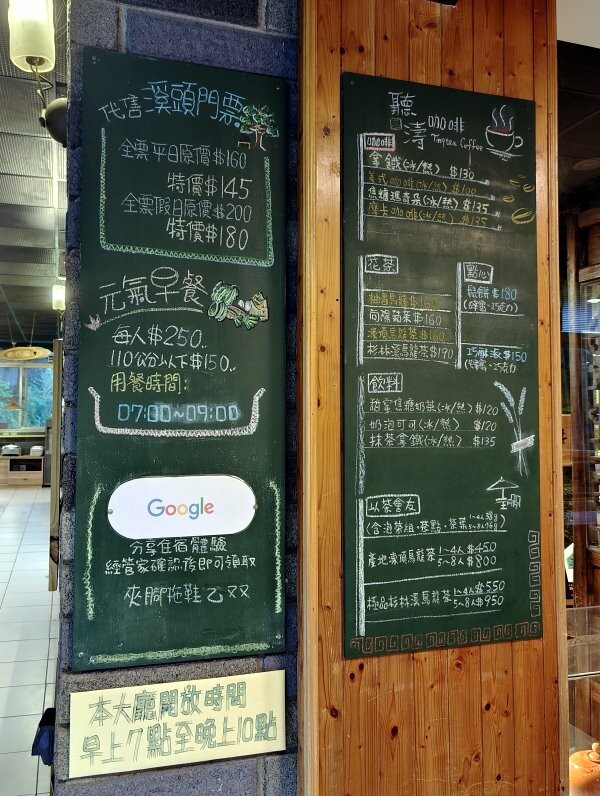 代售溪頭門票
全票平日原價$160
特價$145
全票假日原價$200
特價$180
元氣早餐
每人$250..
110公分以下$150..
用餐時間:
07:00~09:00
Google
分享住宿體驗
經管家確認後即可領取
夾腳拖鞋乙双
本大廳開放時間
早上7點至晚上10點
聽濤咖啡
Tingtea Coffee
咖啡
拿鐵(冰/熱) $130
美式咖啡(冰/熱) $100
焦糖瑪奇朵(冰/熱) $135
摩卡咖啡(冰/熱) $135
花茶
柚香烏龍$160
向陽菊茶$160
凍頂烏龍茶$160
杉林溪烏龍茶$190
點心
鬆餅$180
(蜂蜜·巧克力)
巧酥派$150
飲料
酷寧焦糖奶茶(冰/熱) $120
奶泡可可(冰/熱) $120
抹茶拿鐵(冰/熱) $135
以茶會友
(含泡茶組·茶點·茶葉
產地凍頂烏龍茶 1~4人$450
5~8人$800
極品杉林溪烏龍茶 1~4人$550
5~8人$950